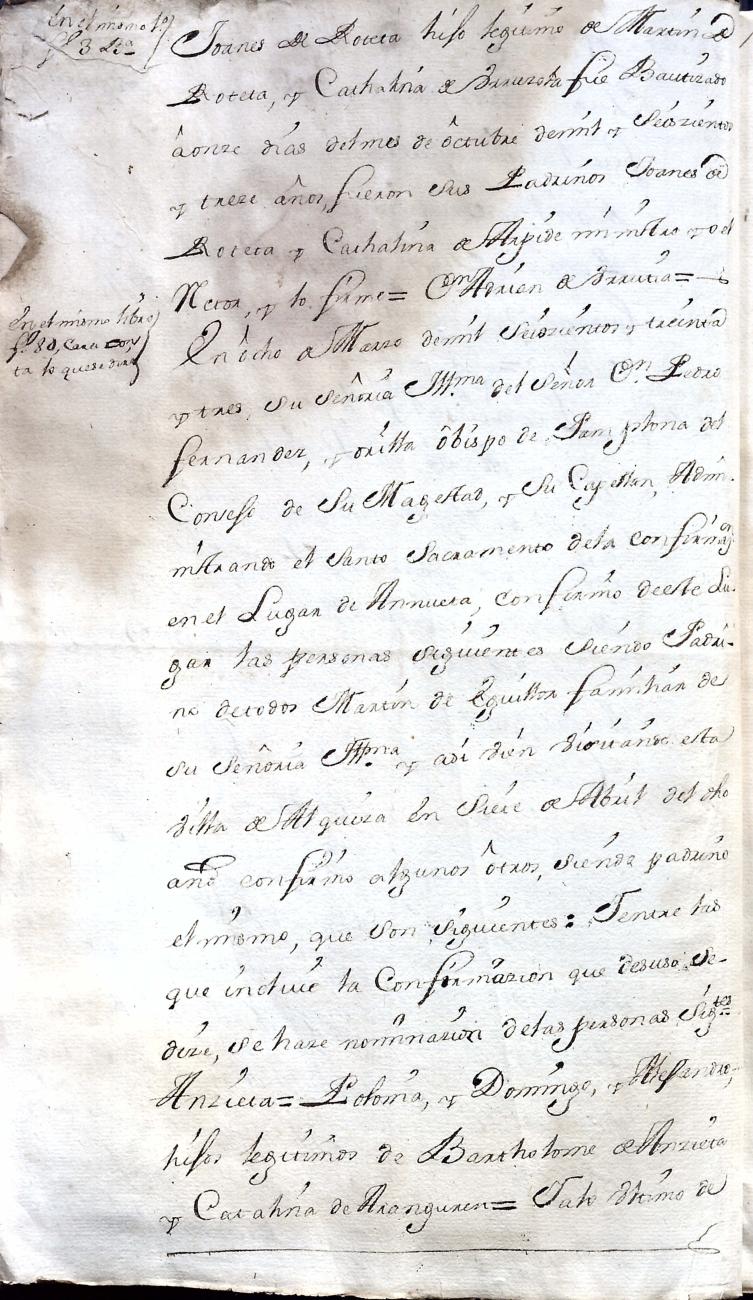 En el mismo lº
fº 3 Bta
Joanes de Roteta hijo legitimo de Martin de
Roteta, y Cathalina de Yrrurola fue Bautizado
â onze dias del mes de octubre de mil y Seiszientos
y treze años, fueron sus Padrinos Joanes de
Roteta y Cathalina de Arpide ministro yo el
Retor, y lo firme= Dn Adrian de Yrrutia=
En el mismo libro
fº 80, cara con
ta lo que se dira
En ôcho de Marzo de mil Seiszientos y treinta
y tres, su señoria Yllma del señor Dn Pedro
fernandez, zorilla ôbispo de Pamplona del
Consejo de Su Magestad, y Su Capellan, Admi-
nistrando el Santo Sacramento de la confirmaon
en el Lugar de Annueta, confirmo de este Lu-
gar las personas siguientes siendo Padri-
no de todos Martin de Eguillor familiar de
su señoria Yllma y assi bien visitando esta
Villa de Alquiza en siete de Abril del dho
año confirmo algunos ôtros, siendo padrino
el mismo, que son siguientes: Y entre las
que incluie la Confirmazion que desuso se
dize, se haze nominazion de las personas Sigtes=
Anzieta= Paloma, y Domingo, y
hijos legitimos de Bartholome de Anzieta
y Catalina de Aranguren= Y al ultimo de